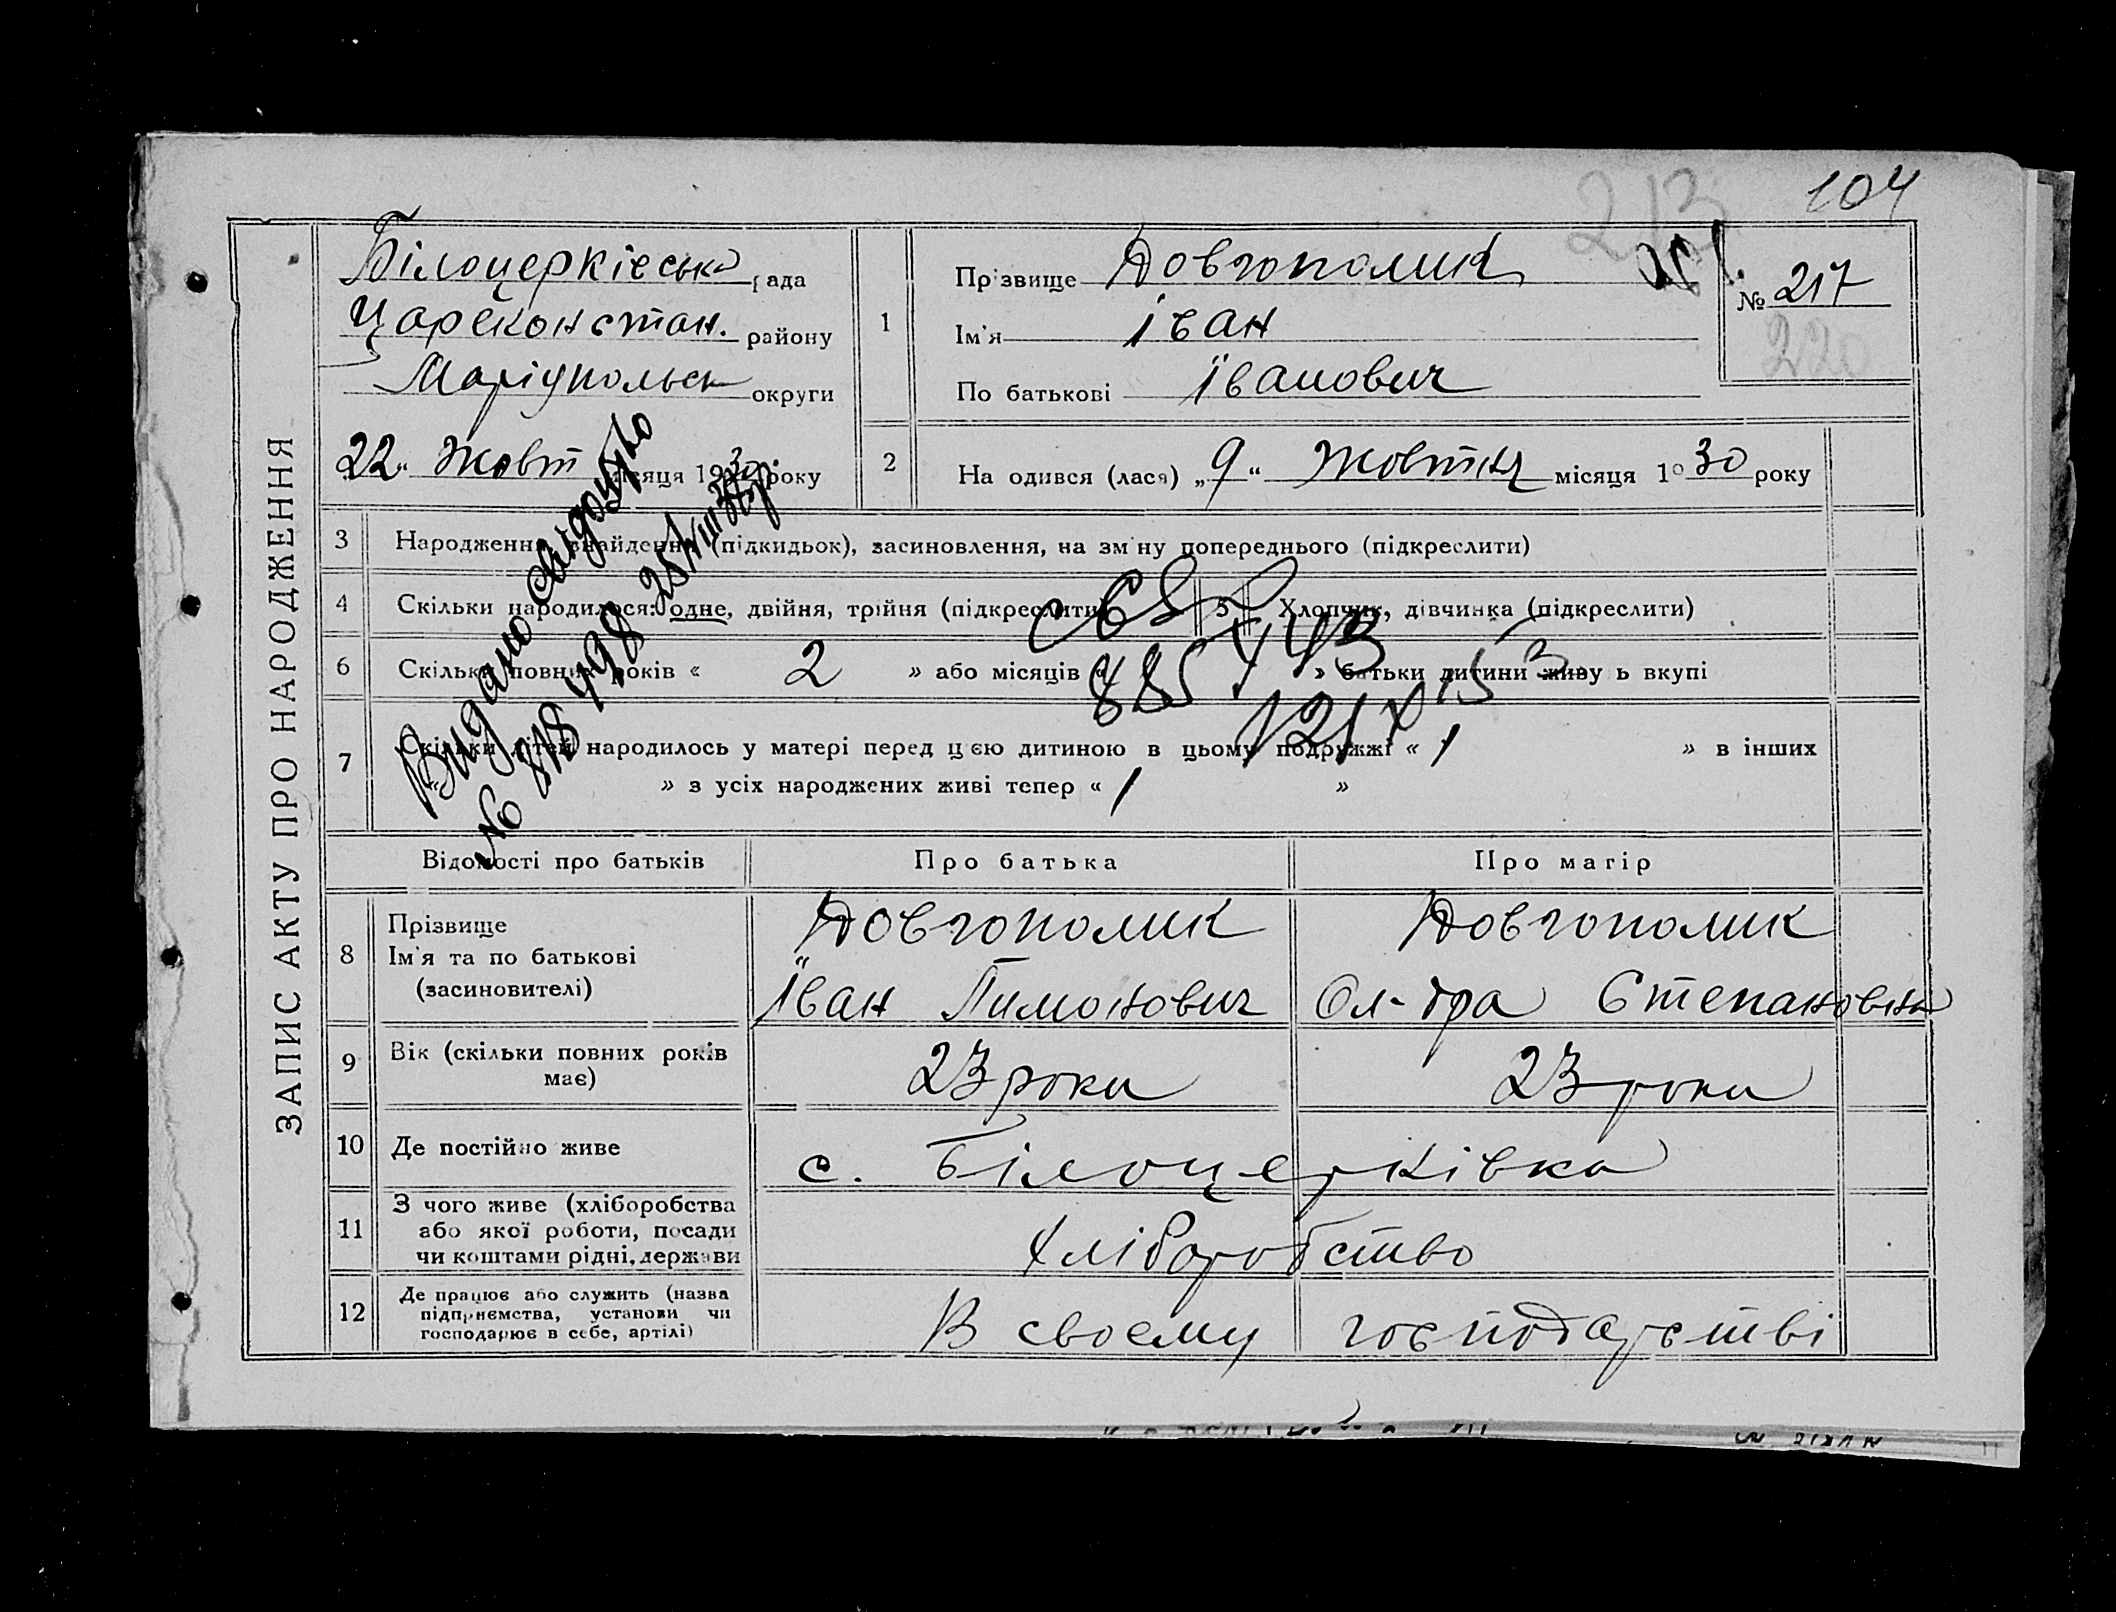 213 104
ЗАПИС АКТУ ПРО НАРОДЖЕННЯ
Білоцерківська рада
Цареконстан. району
Маріупольськ округи
22 " Жовт місяця 1930 року
1
Прізвище Довгополик
Ім'я Іван
По батькові Іванович
№ 217
220
2 На одився (лася) „ 9 " Жовтня місяця 19 30 року
3 Народження, знайдення (підкидьок), засиновлення, на зміну попереднього (підкреслити)
4 Скільки народилося: одне, двійня, трійня (підкреслити) 5 Хлопчик, дівчинка (підкреслити)
6 Скільки повних років « 2 » або місяців « » батьки дитини живу ь вкупі
7 Скільки дітей народилось у матері перед цією дитиною в цьому подружжі « 1 » в інших
» з усіх народжених живі тепер « 1 »
Видано свідоцтво
№
885443
Відомості про батьків Про батька Про матір
8 Прізвище
Ім'я та по батькові
(засиновителі)
Довгополик Довгополик
Іван Тимонович Ол-дра Степановна
9 Вік (скільки повних років має) 23 роки 23 роки
10 Де постійно живе с. Білоцерківка
11 З чого живе (хліборобства
або якої роботи, посади
чи коштами рідні, держави
хліборобство
12 Де працює або служить (назва
підприємства, установи чи
господарює в себе, артілі)
В своему господарстві